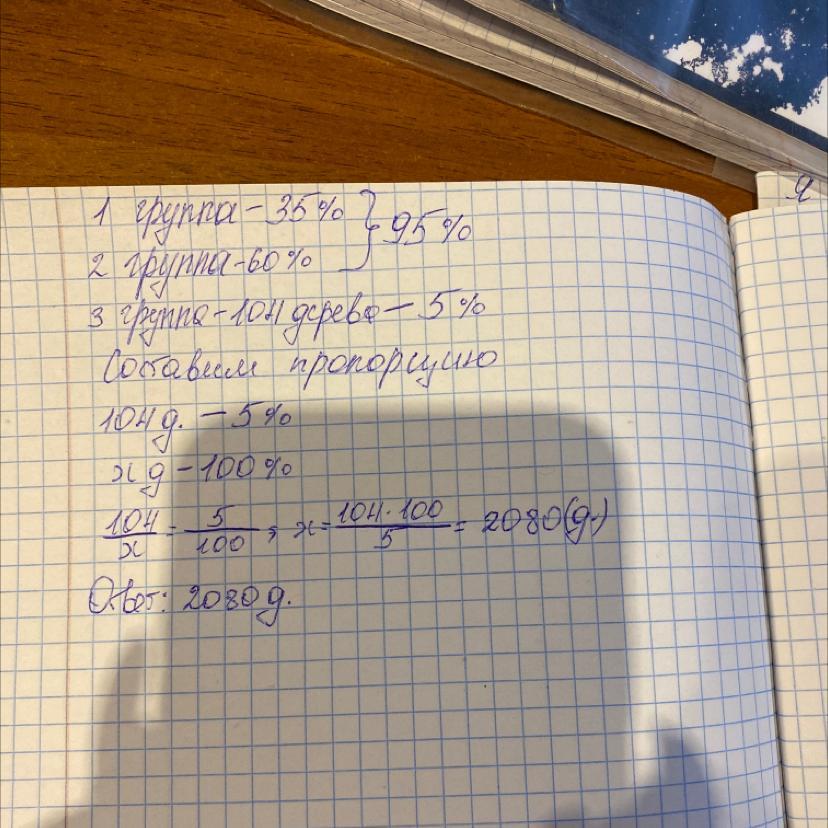 1 группа - 35% } 95%
2 группа - 60%
3 группа - 104 дерево - 5%
Составим пропорцию
104 д. - 5%
х д - 100%
104/х = 5/100 ; х = 104·100/5 = 2080 (д.)
Ответ: 2080 д.